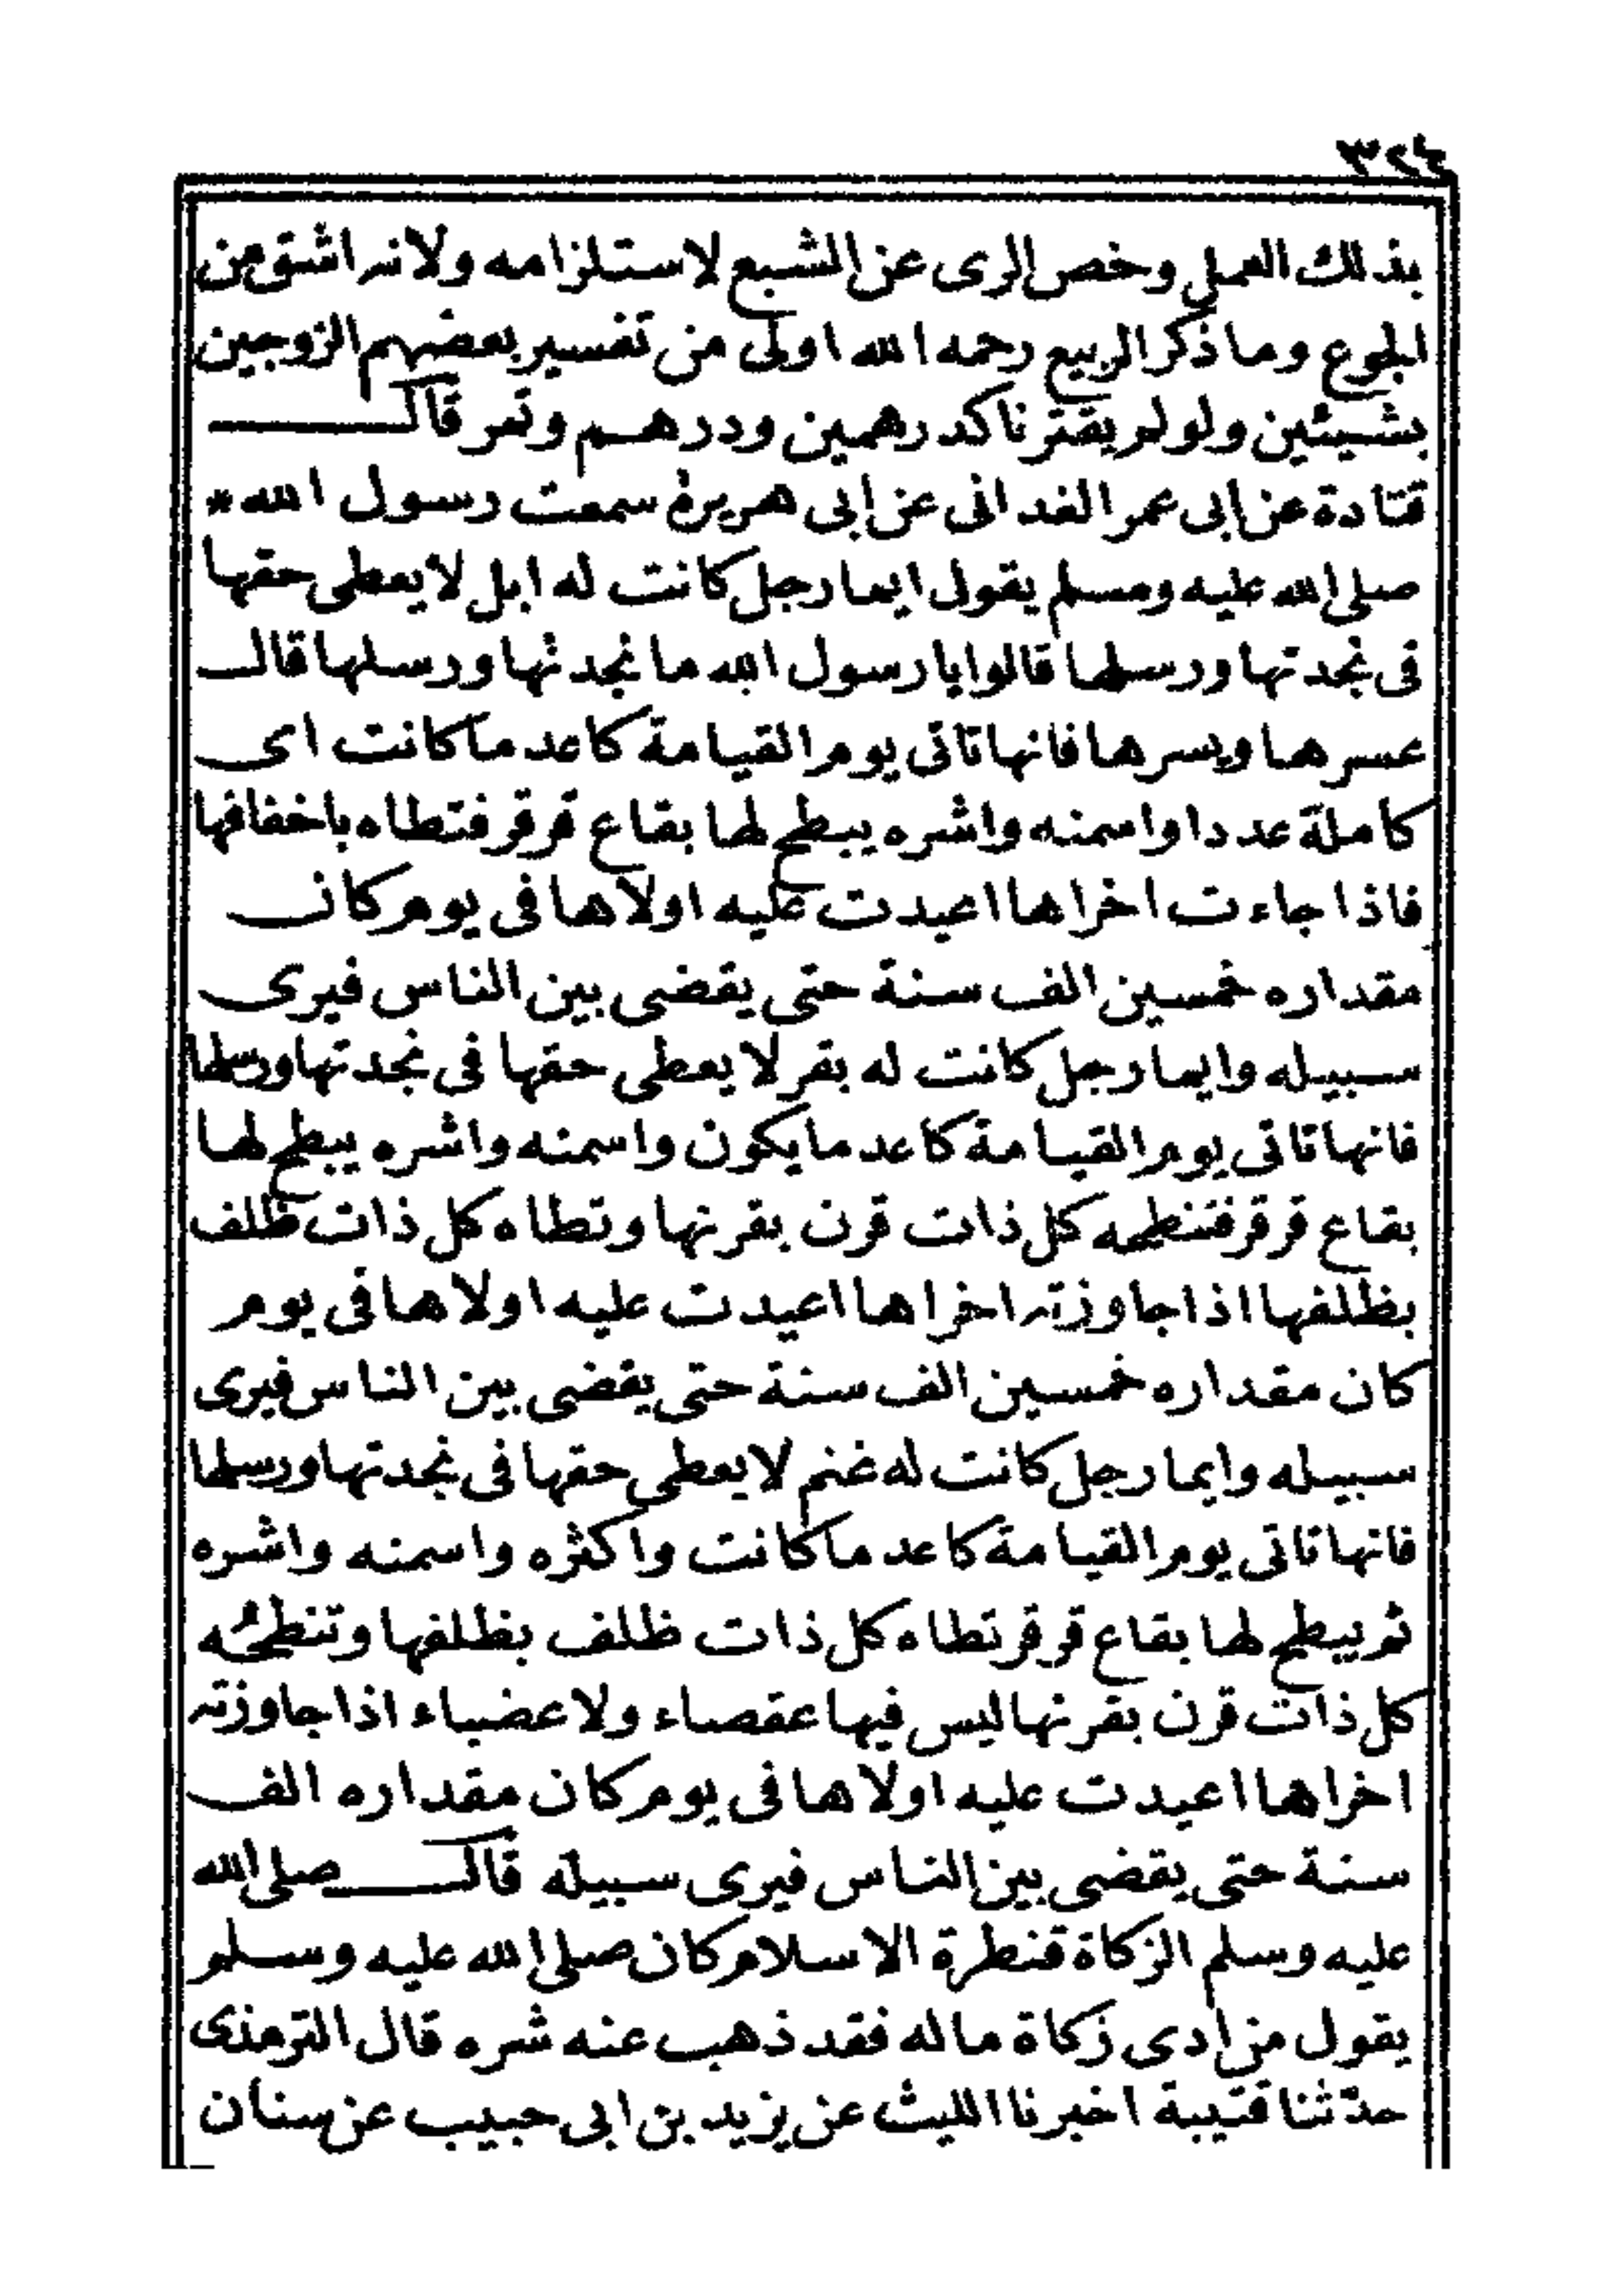 ٣٢٤
بذلك العمل وخص الرى عن الشبع لاستلزامه ولانه اشق من
الجوع وما ذكر الربيع رحمه الله اولى من تفسير بعضهم الزوجين
بشيئين ولو لم يقترنا كدرهمين ودرهم وتمر قال
قتادة عن ابى عمر الغدانى عن ابى هريرة سمعت رسول الله *
صلى الله عليه وسلم يقول ايما رجل كانت له ابل لا يعطى حقها
فى نجدتها ورسلها قالوا يا رسول الله ما نجدتها ورسلها قال
عسرها ويسرها فانها تاتى يوم القيامة كاعد ما كانت اى
كاملة عددا واسمنه واشره يبطح لها بقاع قرقر فتطاه باخفافها
فاذا جاءت اخراها اعيدت عليه اولاها فى يوم كان
مقداره خمسين الف سنة حتى يقضى بين الناس فيرى
سبيله وايما رجل كانت له بقر لا يعطى حقها فى نجدتها ورسلها
فانها تاتى يوم القيامة كاعد ما يكون واسمنه واشره يبطح لها
بقاع قرقر فتنطحه كل ذات قرن بقرنها وتطاه كل ذات ظلف
بظلفها اذا جاوزته اخراها اعيدت عليه اولاها فى يوم
كان مقداره خمسين الف سنة حتى يقضى بين الناس فيرى
سبيله وايما رجل كانت له غنم لا يعطى حقها فى نجدتها ورسلها
فانها تاتى يوم القيامة كاعد ما كانت واكثره واسمنه واشره
ثم يبطح لها بقاع قرقر تطاه كل ذات ظلف بظلفها وتنطحه
كل ذات قرن بقرنها ليس فيها عقصاء ولا عضباء اذا جاوزته
اخراها اعيدت عليه اولاها فى يوم كان مقداره الف
سنة حتى يقضى بين الناس فيرى سبيله قال صلى الله
عليه وسلم الزكاة قنطرة الاسلام كان صلى الله عليه وسلم
يقول من ادى زكاة ماله فقد ذهب عنه شره قال الترمذى
حدّثنا قتيبة اخبرنا الليث عن يزيد بن ابى حبيب عن سنان